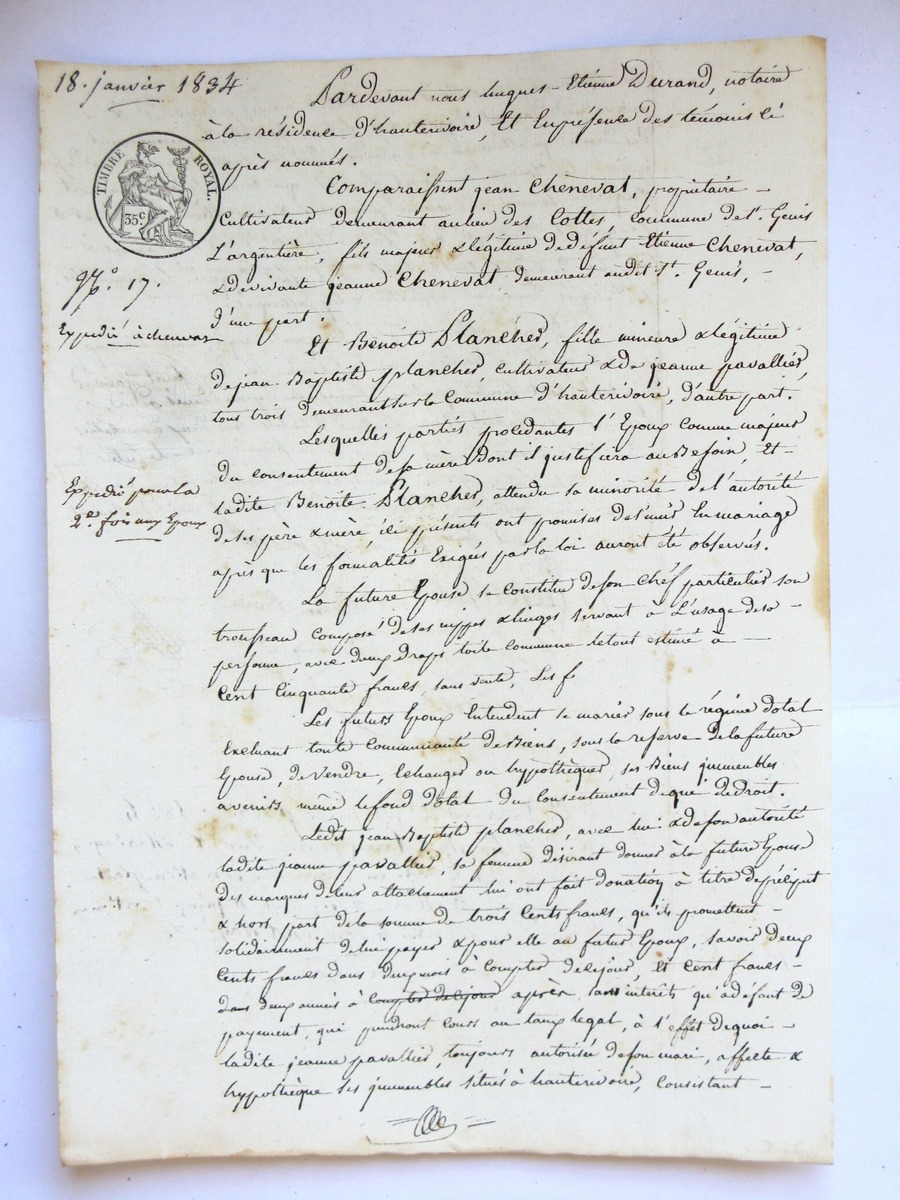 18. janvier 1834
Pardevant nous hugues - Etienne Durand, notaire
à la résidence d'hauterivoire, Et En présence des témoins ci
après nommés.
TIMBRE ROYAL.
35c
Comparaissent jean Chenevat, propriétaire -
Cultivateur demeurant au lieu des Cottes Commune de st. Genis
L'argentière, fils majeur & légitime de défunt Etienne Chenevat,
& de vivante jeanne Chenevat, demeurant audit St. Genis, -
d'une part.
No. 17.
Expedié à chenevat
Et Benoite Planches, fille mineure & légitime
de jean Baptiste planches, cultivateur & de jeanne pavallier,
tous trois demeurant sur la Commune d'hauterivoire, d'autre part.
Lesquelles parties procédantes l'Epoux comme majeur
du consentement de sa mère dont il justifiera au Besoin, Et -
ladite Benoite Planches, attendu sa minorité de l'autorité
de ses père & mère ici présents ont promises de s'unir En mariage
après que les formalités Exigées par la loi auront été observés.
Expedié pour la
2e. fois aux Epoux
La future Epouse se Constitue de son chéf particulier son
trousseau composé de ses nippes & linges servant à L'usage de sa -
personne, avec deux draps toile commune le tout estimé à -
Cent Cinquante francs, sans vente, Les f
Les futurs Epoux Entendent se marier sous le régime dotal
Excluant toute Communauté de Biens, sous la reserve de la future
Epouse, de vendre, Echanger ou hypothèquer, ses Biens immeubles
avenirs, même le fond dotal du consentement de qui de droit.
Ledit jean Baptiste planches, avec lui & de son autorité
ladite jeanne pavallier, sa femme désirant donner à la future Epouse
des marques de leur attachement lui ont fait donation à titre de préciput
& hors part de la somme de trois Cents francs, qu'ils promettent -
solidairement de lui payer & pour elle au futur Epoux, savoir deux
Cents francs dans deux mois à Compter de ce jour, Et cent francs -
dans deux années à compter de ce jour après, sans intérêts qu'à défaut de
payement, qui prendront cours au taux legal, à l'effet de quoi -
ladite jeanne pavallier, toujours autorisée de son mari, affecte &
hypothèque ses immeubles situés à hauterivoire, Consistant -